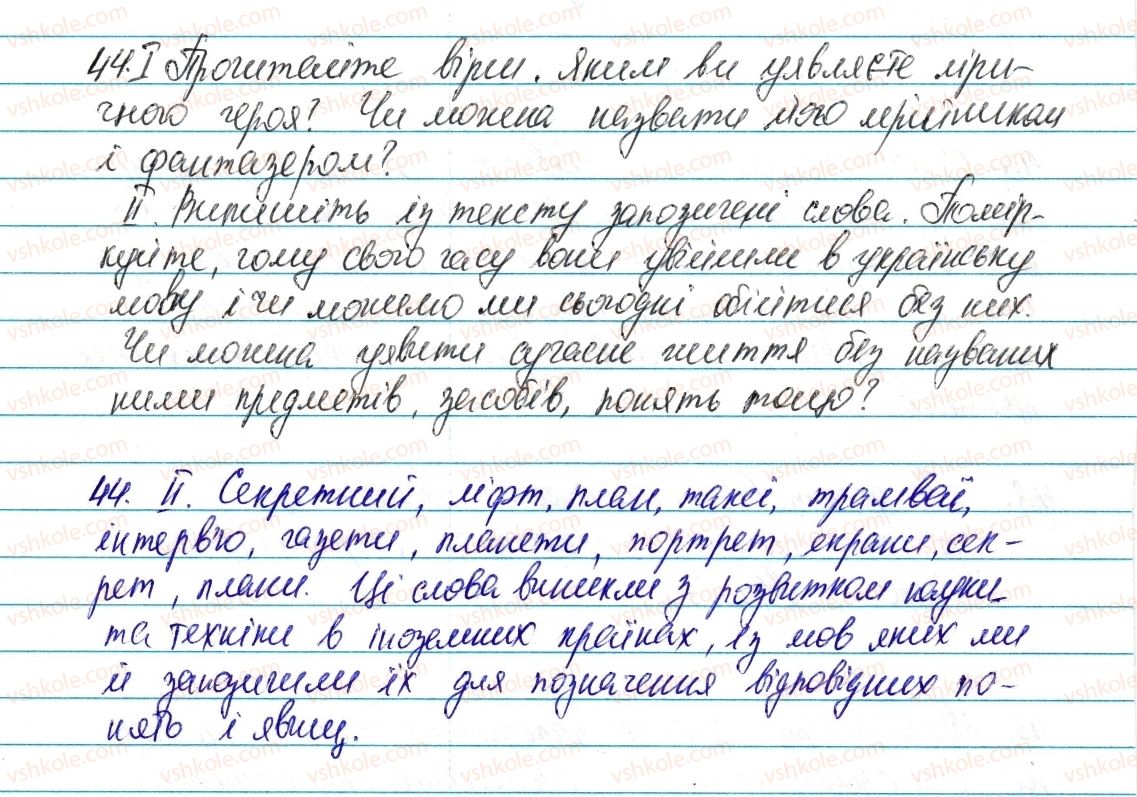 44. I Прочитайте вірш. Яким ви уявляєте ліри-
чного героя? Чи можна назвати його мрійником
і фантазером?
II. Випишіть із тексту запозичені слова. Помір-
куйте, чому свого часу вони увійшли в українську
мову і чи можемо ми сьогодні обійтися без них.
Чи можна уявити сучасне життя без названих
ними предметів, засобів, понять тощо?
44. II. Секретний, ліфт, план, таксі, трамвай,
інтерв'ю, газети, планети, портрет, екрани, сек-
рет, плани. Ці слова виникли з розвитком науки
та техніки в іноземних країнах, із мов яких ми
й запозичили їх для позначення відповідних по-
нять і явищ.